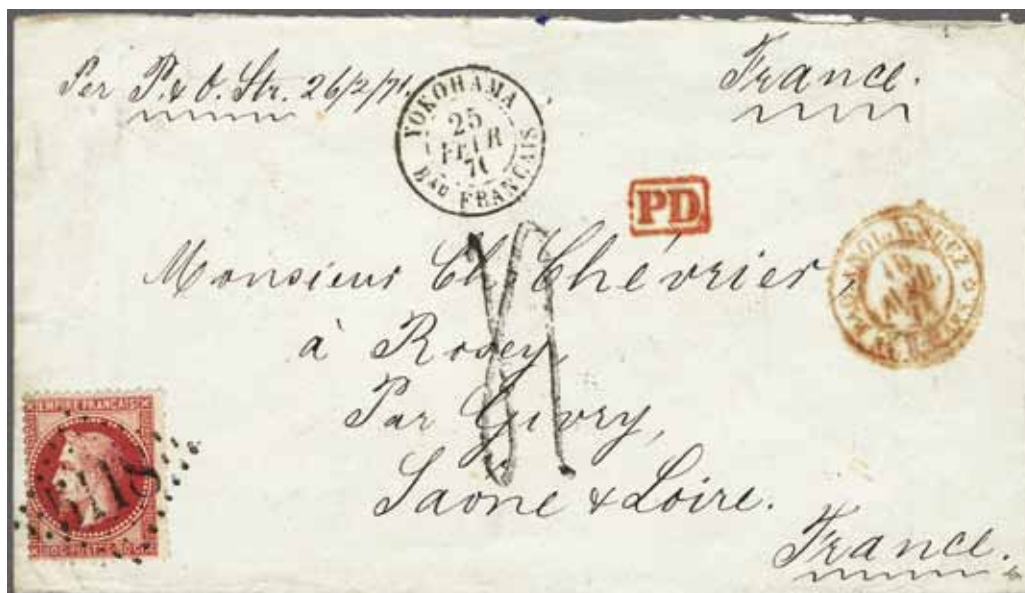 Per P. & O. Str. 26/2/71.
France.
YOKOHAMA
25
FEVR
71
Bau FRANCAIS
PD
Monsieur Ch. Chévrier,
à Rosey,
Par Givry,
Saône & Loire.
France.
EMPIRE FRANÇAIS
5118